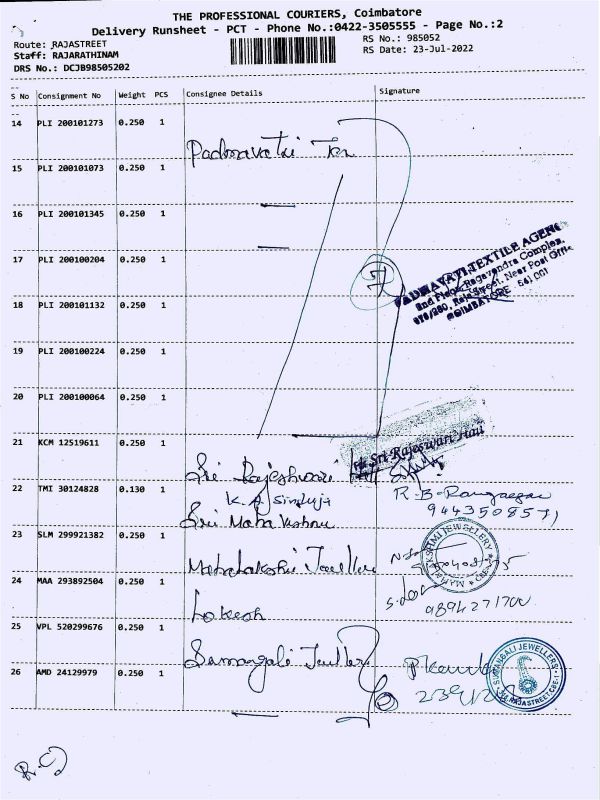 THE PROFESSIONAL COURIERS, Coimbatore
Delivery Runsheet - PCT - Phone No.:0422-3505555 - Page No.:2
Route: RAJASTREET
RS No.: 985052
Staff: RAJARATHINAM
RS Date: 23-Jul-2022
DRS No.: DCJB98505202
S No Consignment No Weight PCS Consignee Details Signature
14 PLI 200101273 0.250 1
Padmavathi Tex
15 PLI 200101073 0.250 1
16 PLI 200101345 0.250 1
17 PLI 200100204 0.250 1
PADMAVATI TEXTILE AGENCY
2nd Floor, Ragavendra Complex,
Raja Street, Near Post Office
COIMBATORE - 641 001
18 PLI 200101132 0.250 1
19 PLI 200100224 0.250 1
20 PLI 200100064 0.250 1
21 KCM 12519611 0.250 1
Sri Rajeswari Hall
Sri Rajeshwari Hall
22 TMI 30124828 0.130 1
K.A.
R-B-Rangaraj
Sri Maha Vishnu
23 SLM 299921382 0.250 1
Mahalakshmi Jewellers
MAHALAKSHMI JEWELLERY
24 MAA 293892504 0.250 1
Lokesh
9894271700
25 VPL 520299676 0.250 1
Sumangali Jewellers
SUMANGALI JEWELLERS
RAJA STREET, CBE-1
26 AMD 24129979 0.250 1